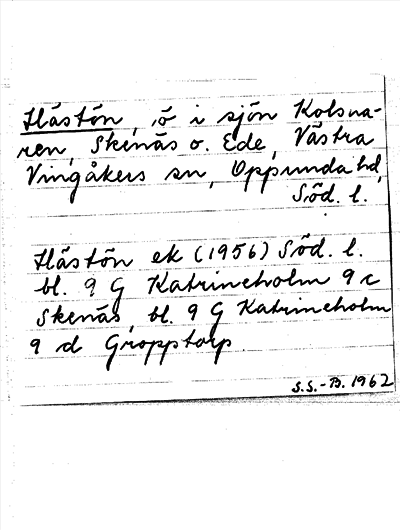 Hästön, ö i sjön Kolsna-
ren, Skenäs o. Ede, Västra
Vingåkers sn, Oppunda hd,
Söd. l.
Hästön ek (1956) Söd. l.
bl. 9 G Katrineholm 9 c
Skenäs, bl. 9 G Katrineholm
9 d Gropptorp.
S.S.-B. 1962